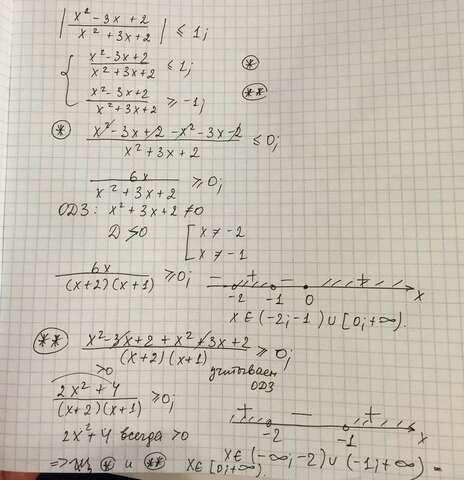 | x² - 3x + 2 / x² + 3x + 2 | ≤ 1;
{ x² - 3x + 2 / x² + 3x + 2 ≤ 1; *
x² - 3x + 2 / x² + 3x + 2 ≥ -1; **
* x² - 3x + 2 - x² - 3x - 2 / x² + 3x + 2 ≤ 0;
6x / x² + 3x + 2 ≥ 0;
ОДЗ: x² + 3x + 2 ≠ 0
D > 0 [ x ≠ -2
x ≠ -1
6x / (x+2)(x+1) ≥ 0; - + - + -2 -1 0 x
x ∈ (-2; -1) ∪ [0; +∞).
** x² - 3x + 2 + x² + 3x + 2 / (x+2)(x+1) ≥ 0;
>0 учитываем
2x² + 4 / (x+2)(x+1) ≥ 0; ОДЗ
+ - + -2 -1 x
2x² + 4 всегда > 0
x ∈ (-∞; -2) ∪ (-1; +∞)
=> из * и ** x ∈ [0; +∞).